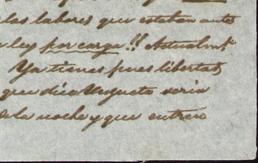 las labores que estaban antes
ley por carga!! Actualmte
Ya tienes pues libertad,
que dice Vegueta seria
de la noche y que entren